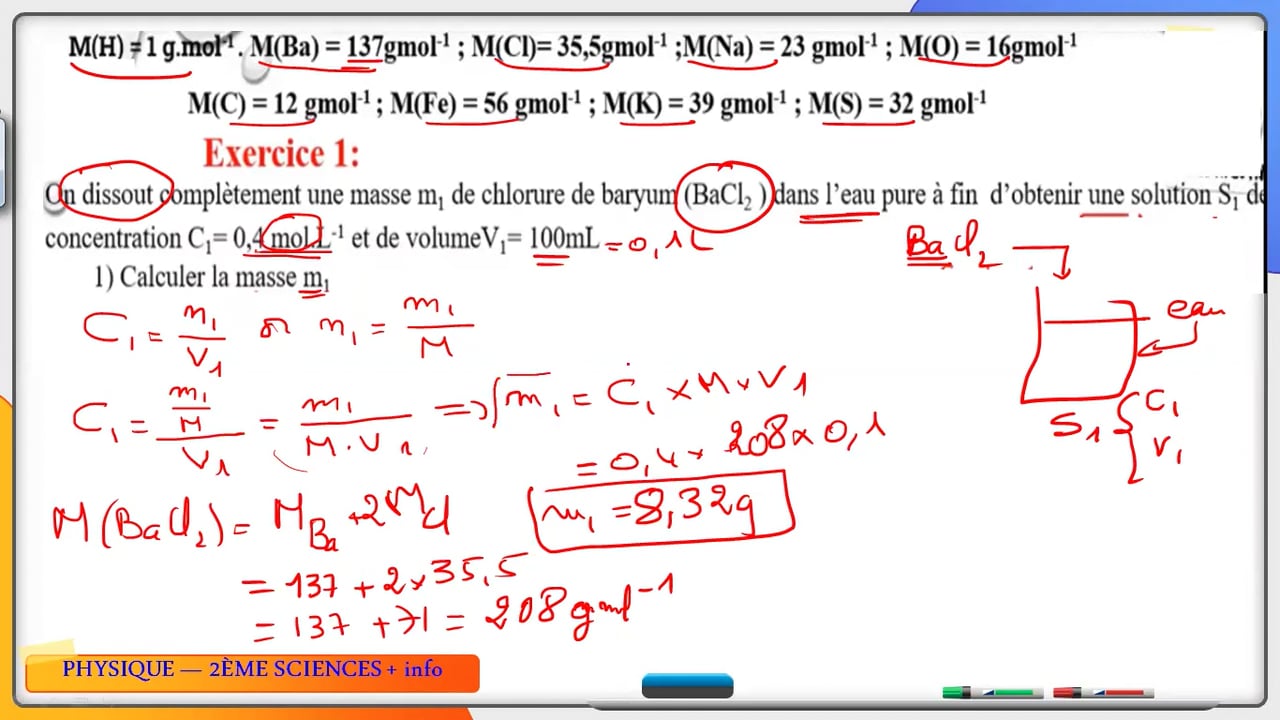 M(H) = 1 g.mol⁻¹. M(Ba) = 137gmol⁻¹ ; M(Cl)= 35,5gmol⁻¹ ;M(Na) = 23 gmol⁻¹ ; M(O) = 16gmol⁻¹
M(C) = 12 gmol⁻¹ ; M(Fe) = 56 gmol⁻¹ ; M(K) = 39 gmol⁻¹ ; M(S) = 32 gmol⁻¹
Exercice 1:
On dissout complètement une masse m₁ de chlorure de baryum (BaCl₂ ) dans l'eau pure à fin d'obtenir une solution S₁ de
concentration C₁= 0,4 mol.L⁻¹ et de volumeV₁= 100mL = 0,1L
BaCl₂
1) Calculer la masse m₁
eau
C₁ = n₁/V₁ or n₁ = m₁/M
C₁ = (m₁/M)/V₁ = m₁/(M.V₁) => m₁ = C₁ x M x V₁
S₁ { C₁
V₁
= 0,4 x 208 x 0,1
m₁ = 8,32g
M(BaCl₂) = M Ba + 2M Cl
= 137 + 2 x 35,5
= 137 + 71 = 208 gmol⁻¹
PHYSIQUE — 2ÈME SCIENCES + info